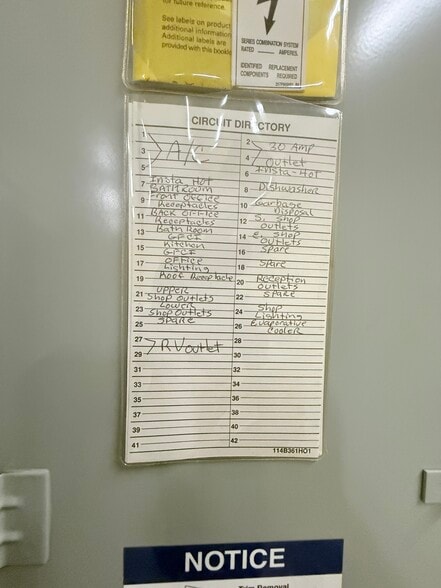 for future reference.
See labels on product
additional information
Additional labels are
provided with this
SERIES COMBINATION SYSTEM
RATED AMPERES.
IDENTIFIED REPLACEMENT
COMPONENTS REQUIRED
CIRCUIT DIRECTORY
1
3 A/C
5
7 Insta Hot
BATHROOM
9 Front Office
Receptacles
11 BACK OFFICE
Receptacles
13 BathRoom
GFCI
15 Kitchen
GFCI
17 OFFICE
Lighting
19 Roof Receptacle
21 UPPER
Shop Outlets
23 Lower
Shop Outlets
25 SPARE
27
29 RV outlet
31
33
35
37
39
41
2 30 AMP
4 Outlet
6 Insta-Hot
8 Dishwasher
10 Garbage
Disposal
12 S. Shop
outlets
14 E. Shop
Outlets
16 Spare
18 Spare
20 Reception
outlets
22 SPARE
24 Shop
Lighting
26 Evaporative
Cooler
28
30
32
34
36
38
40
42
114B361HO1
NOTICE
Trim Removal